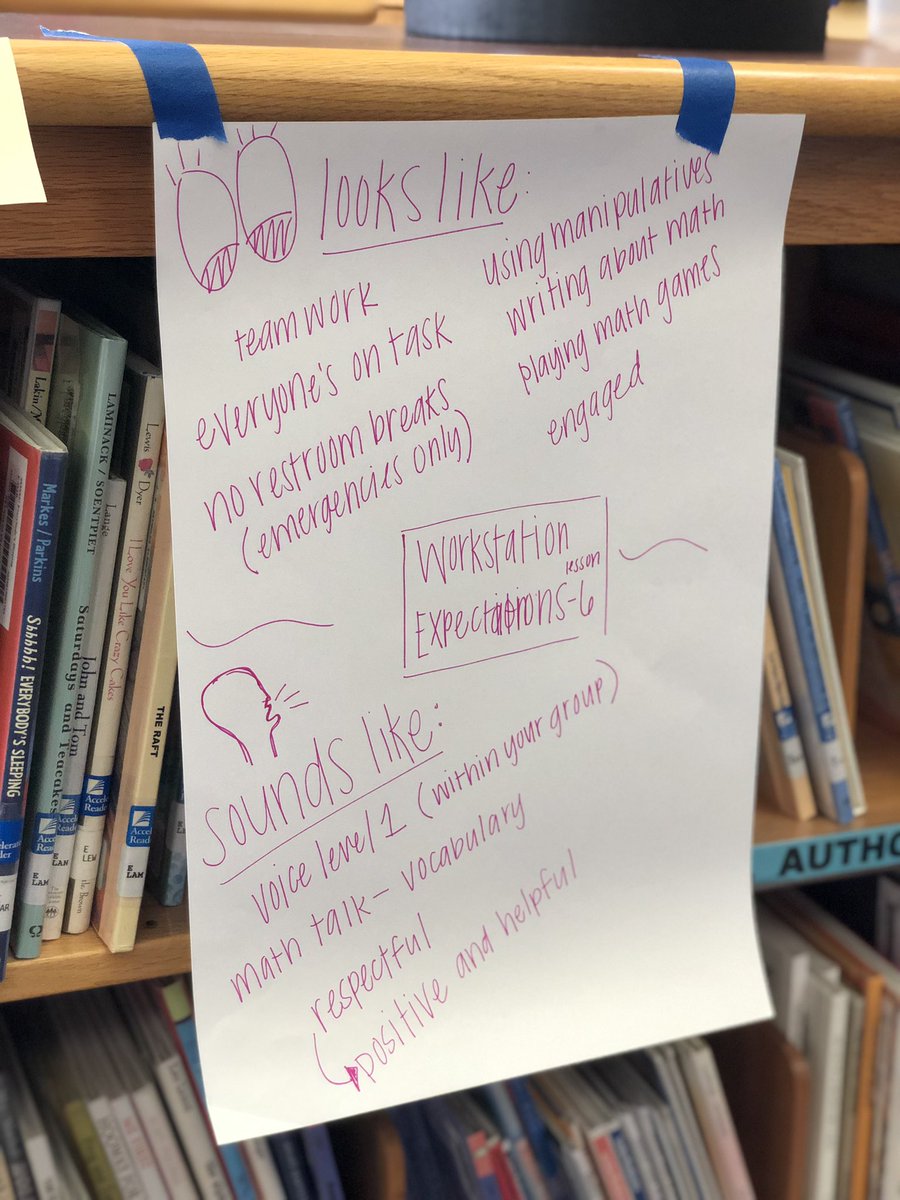 looks like:
teamwork
everyone's on task
no restroom breaks
(emergencies only)
using manipulatives
writing about math
playing math games
engaged
Workstation
lesson
Expectations-6
sounds like:
voice level 1 (within your group)
math talk- vocabulary
respectful
positive and helpful
Markes / Parkins
Shhhhh! EVERYBODY'S SLEEPING
LAMINACK / SOENTPIET
Saturdays and Teacakes
Lange
John and Tom
Lewis
Dyer
I Love You Like Crazy Cakes
THE RAFT
E
LAM
E
LAN
E
LEW
E
LAM
AUTHO